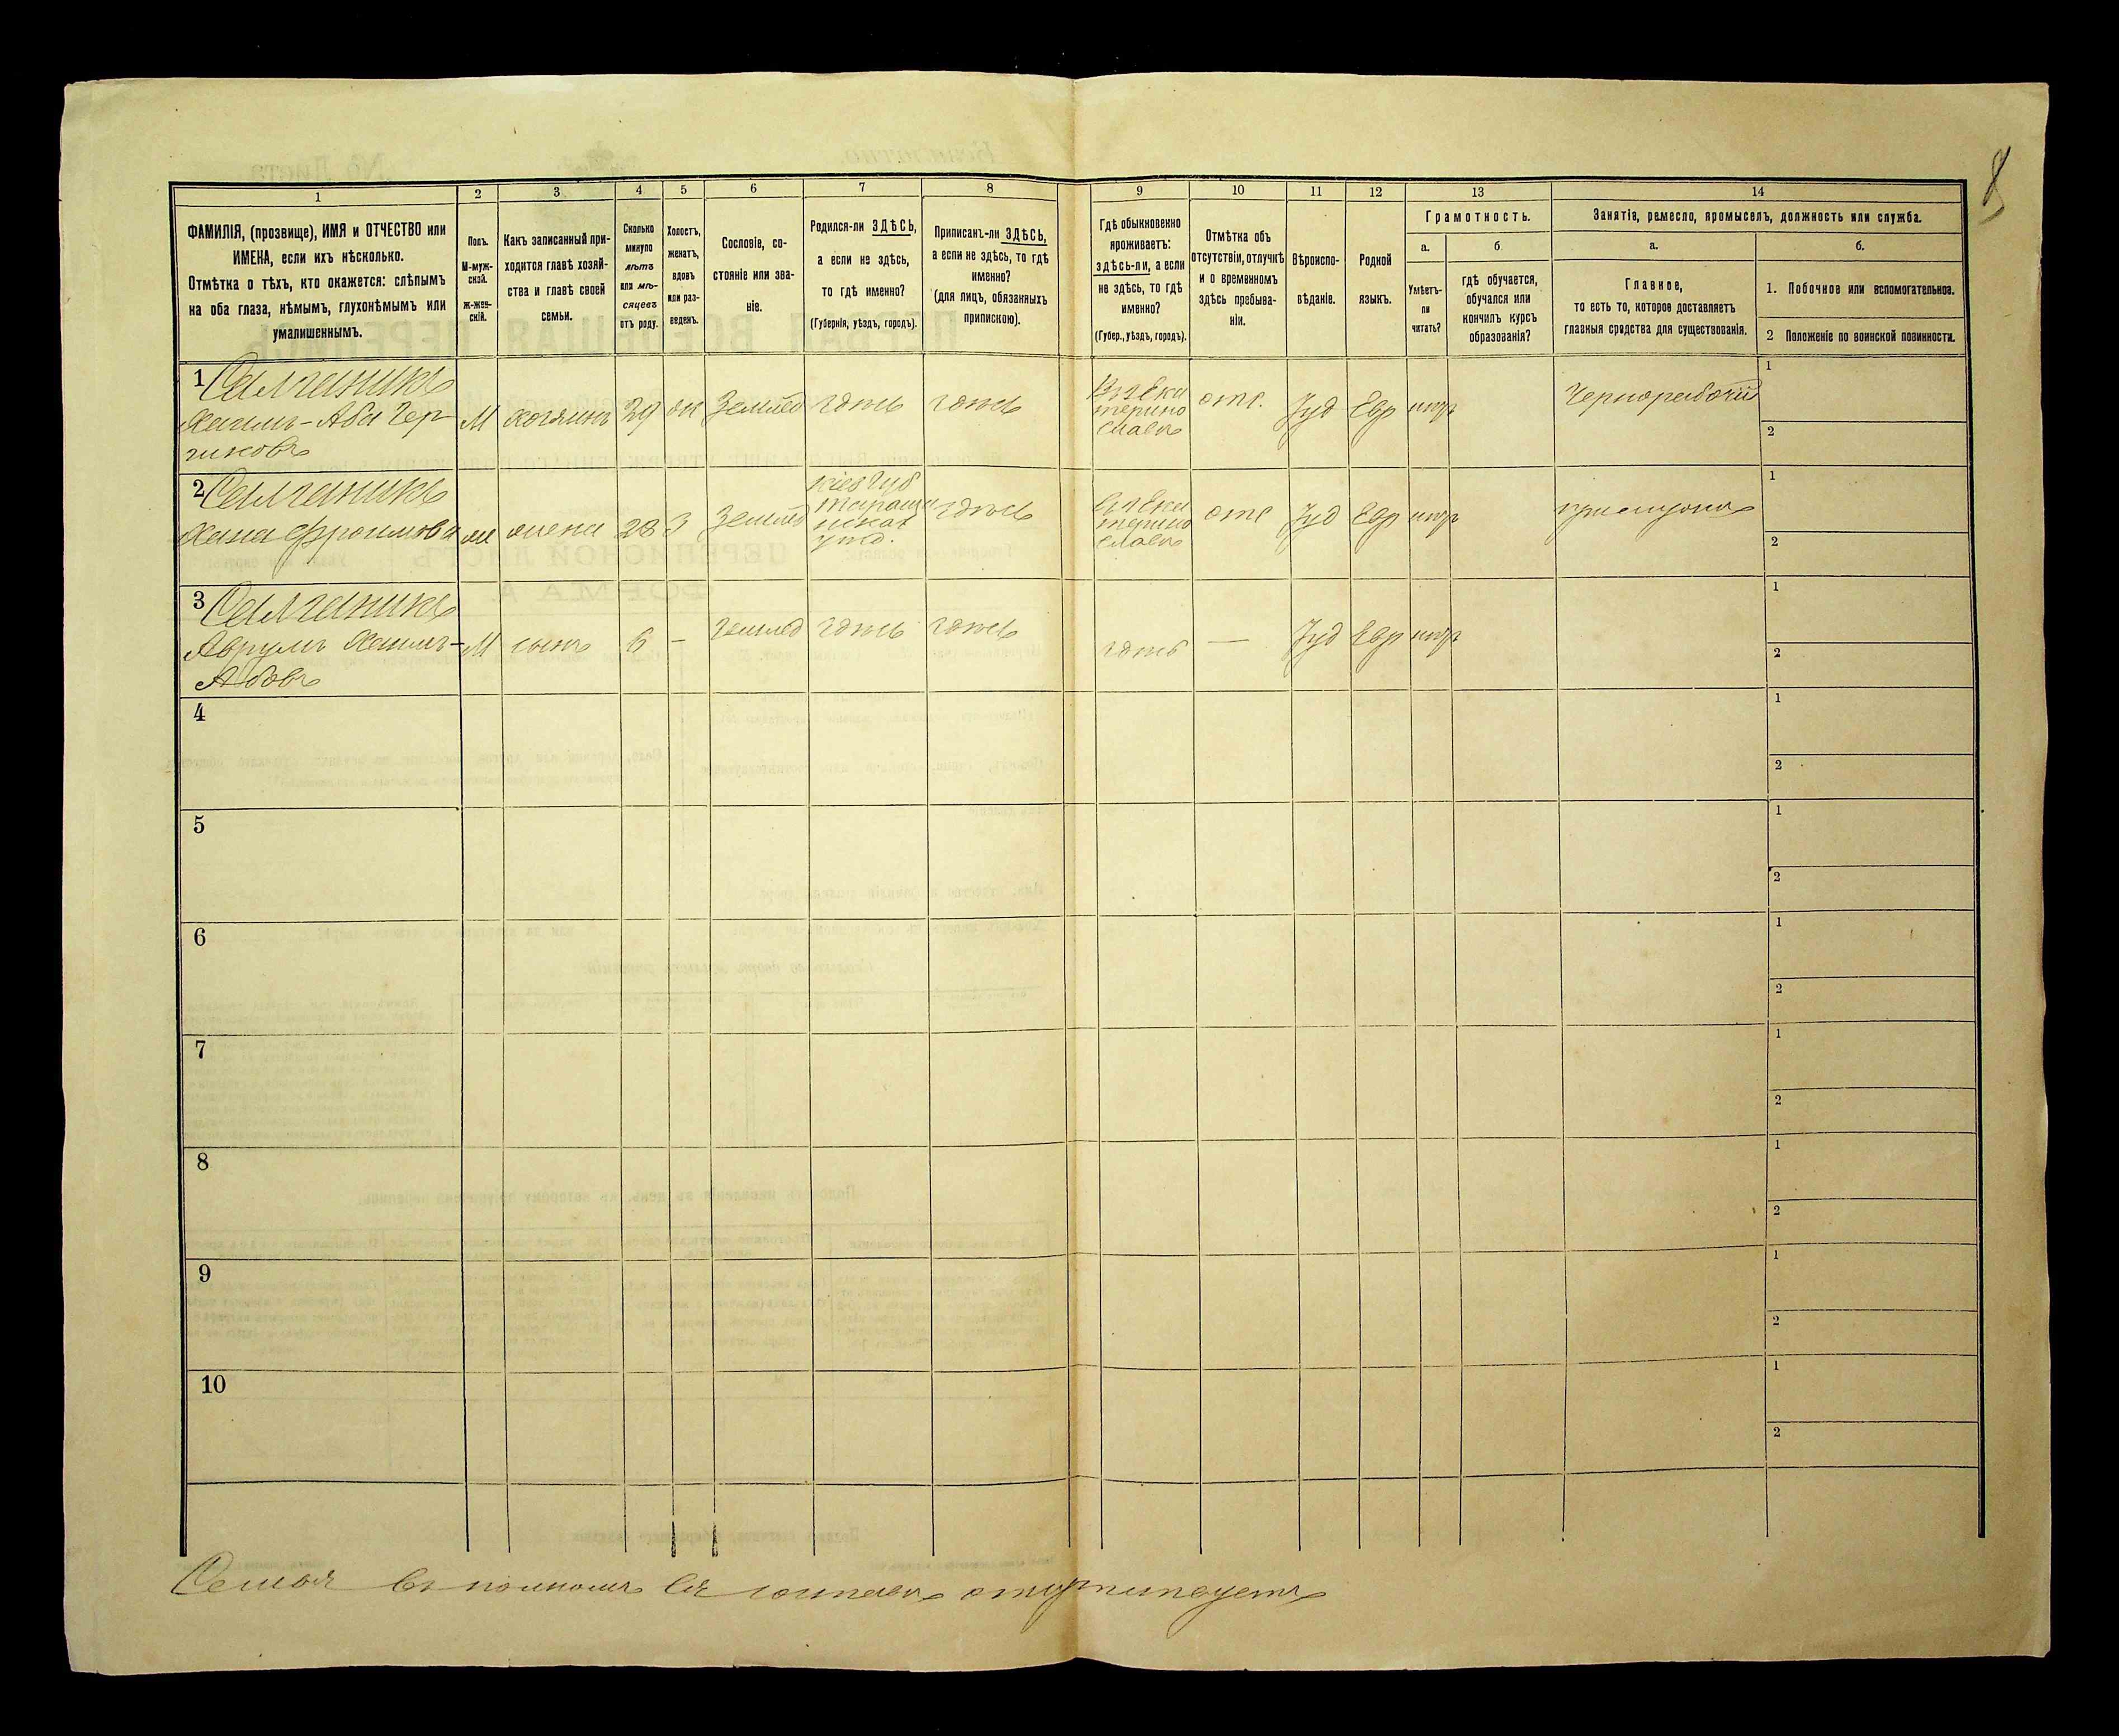 8
1 2 3 4 5 6 7 8 9 10 11 12 13 14
ФАМИЛІЯ, (прозвище), ИМЯ и ОТЧЕСТВО или
ИМЕНА, если ихъ нѣсколько.
Отмѣтка о тѣхъ, кто окажется: слѣпымъ
на оба глаза, нѣмымъ, глухонѣмымъ или
умалишеннымъ.
Полъ.
М-муж-
ской.
Ж-жен-
скій.
Какъ записанный при-
ходится главѣ хозяй-
ства и главѣ своей
семьи.
Сколько
минуло
лѣтъ
или мѣ-
сяцевъ
отъ роду.
Холостъ,
женатъ,
вдовъ
или раз-
веденъ.
Сословіе, со-
стояніе или зва-
ніе.
Родился-ли ЗДѢСЬ,
а если не здѣсь,
то гдѣ именно?
(Губернія, уѣздъ, городъ).
Приписанъ-ли ЗДѢСЬ,
а если не здѣсь, то гдѣ
именно?
(для лицъ, обязанныхъ
припискою).
Гдѣ обыкновенно
проживаетъ:
здѣсь-ли, а если
не здѣсь, то гдѣ
именно?
(Губер., уѣздъ, городъ).
Отмѣтка объ
отсутствіи, отлучкѣ
и о временномъ
здѣсь пребыва-
ніи.
Вѣроиспо-
вѣданіе.
Родной
языкъ.
Грамотность.
а.
Умѣетъ-
ли
читать?
б
гдѣ обучается,
обучался или
кончилъ курсъ
образованія?
Занятія, ремесло, промыселъ, должность или служба.
а.
Главное,
то есть то, которое доставляетъ
главныя средства для существованія.
б.
1. Побочное или вспомогательное.
2 Положеніе по воинской повинности.
1
М хозяинъ 29 Землед здѣсь здѣсь
отс. Іуд Евр
Чернорабочій
1
2
2
Хана Фроимова жена 28 З Землед
Кіев Губ
уѣзд.
здѣсь
отс Іуд Евр
прислуга
1
2
3
Аврумъ М сынъ 6 – землед здѣсь здѣсь
здѣсь — Іуд Евр
1
2
4
1
2
5
1
2
6
1
2
7
1
2
8
1
2
9
1
2
10
1
2
Семья въ полномъ Ея составѣ отсутствуетъ